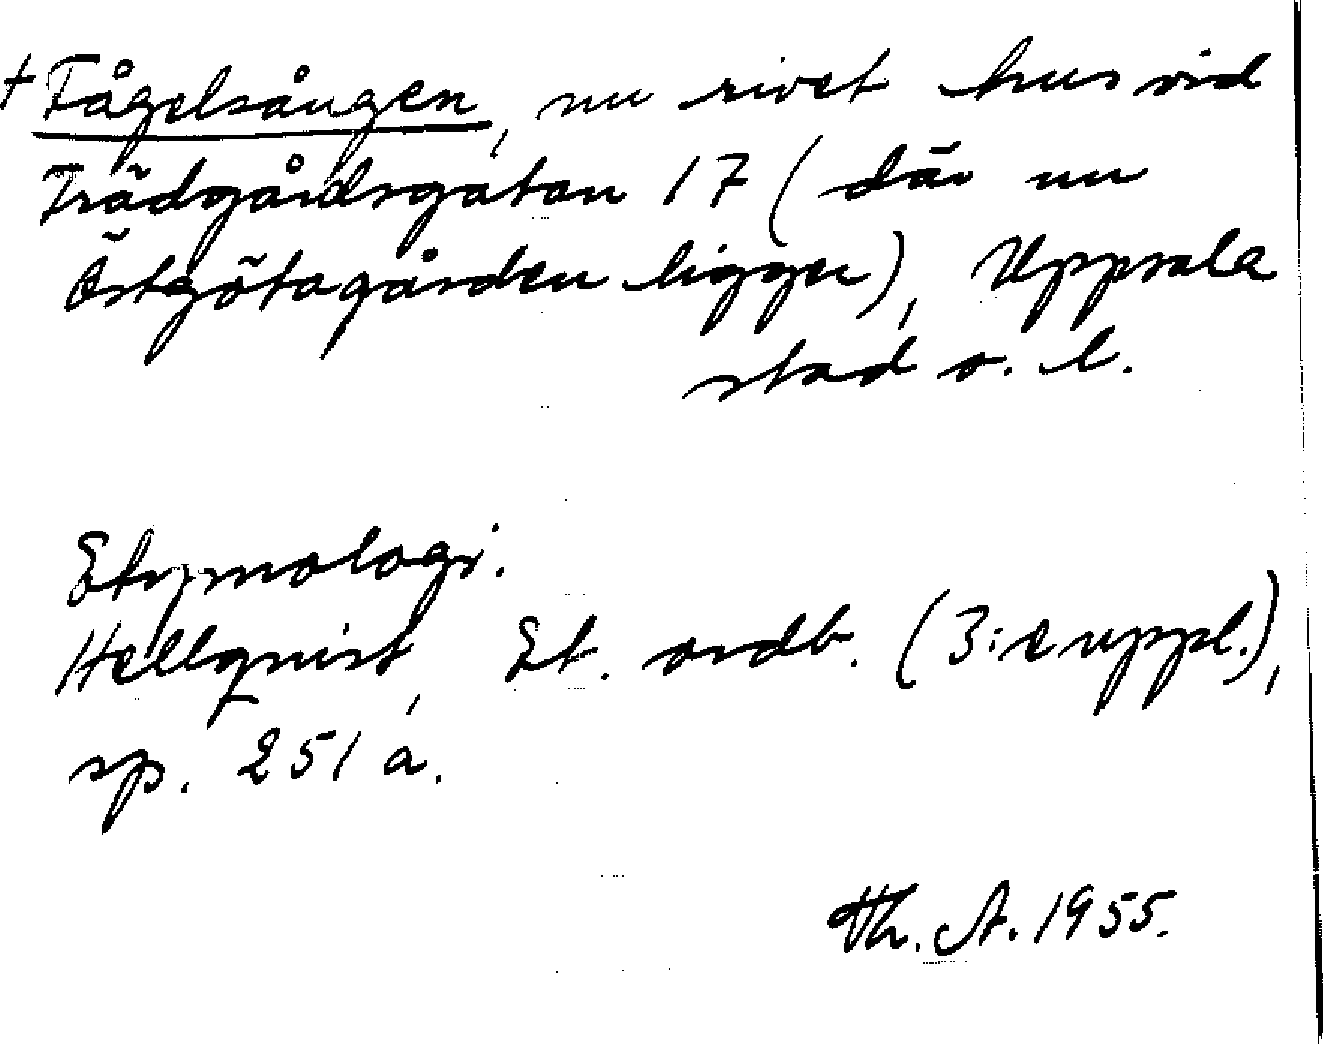 † Fågelsången, nu rivet hus vid
Trädgårdsgatan 17 (där nu
Östgötagården ligger), Uppsala
stad o. l.
Etymologi.
Hellquist, Et. ordb. (3:e uppl.),
sp. 251 a.
Th. A. 1955.